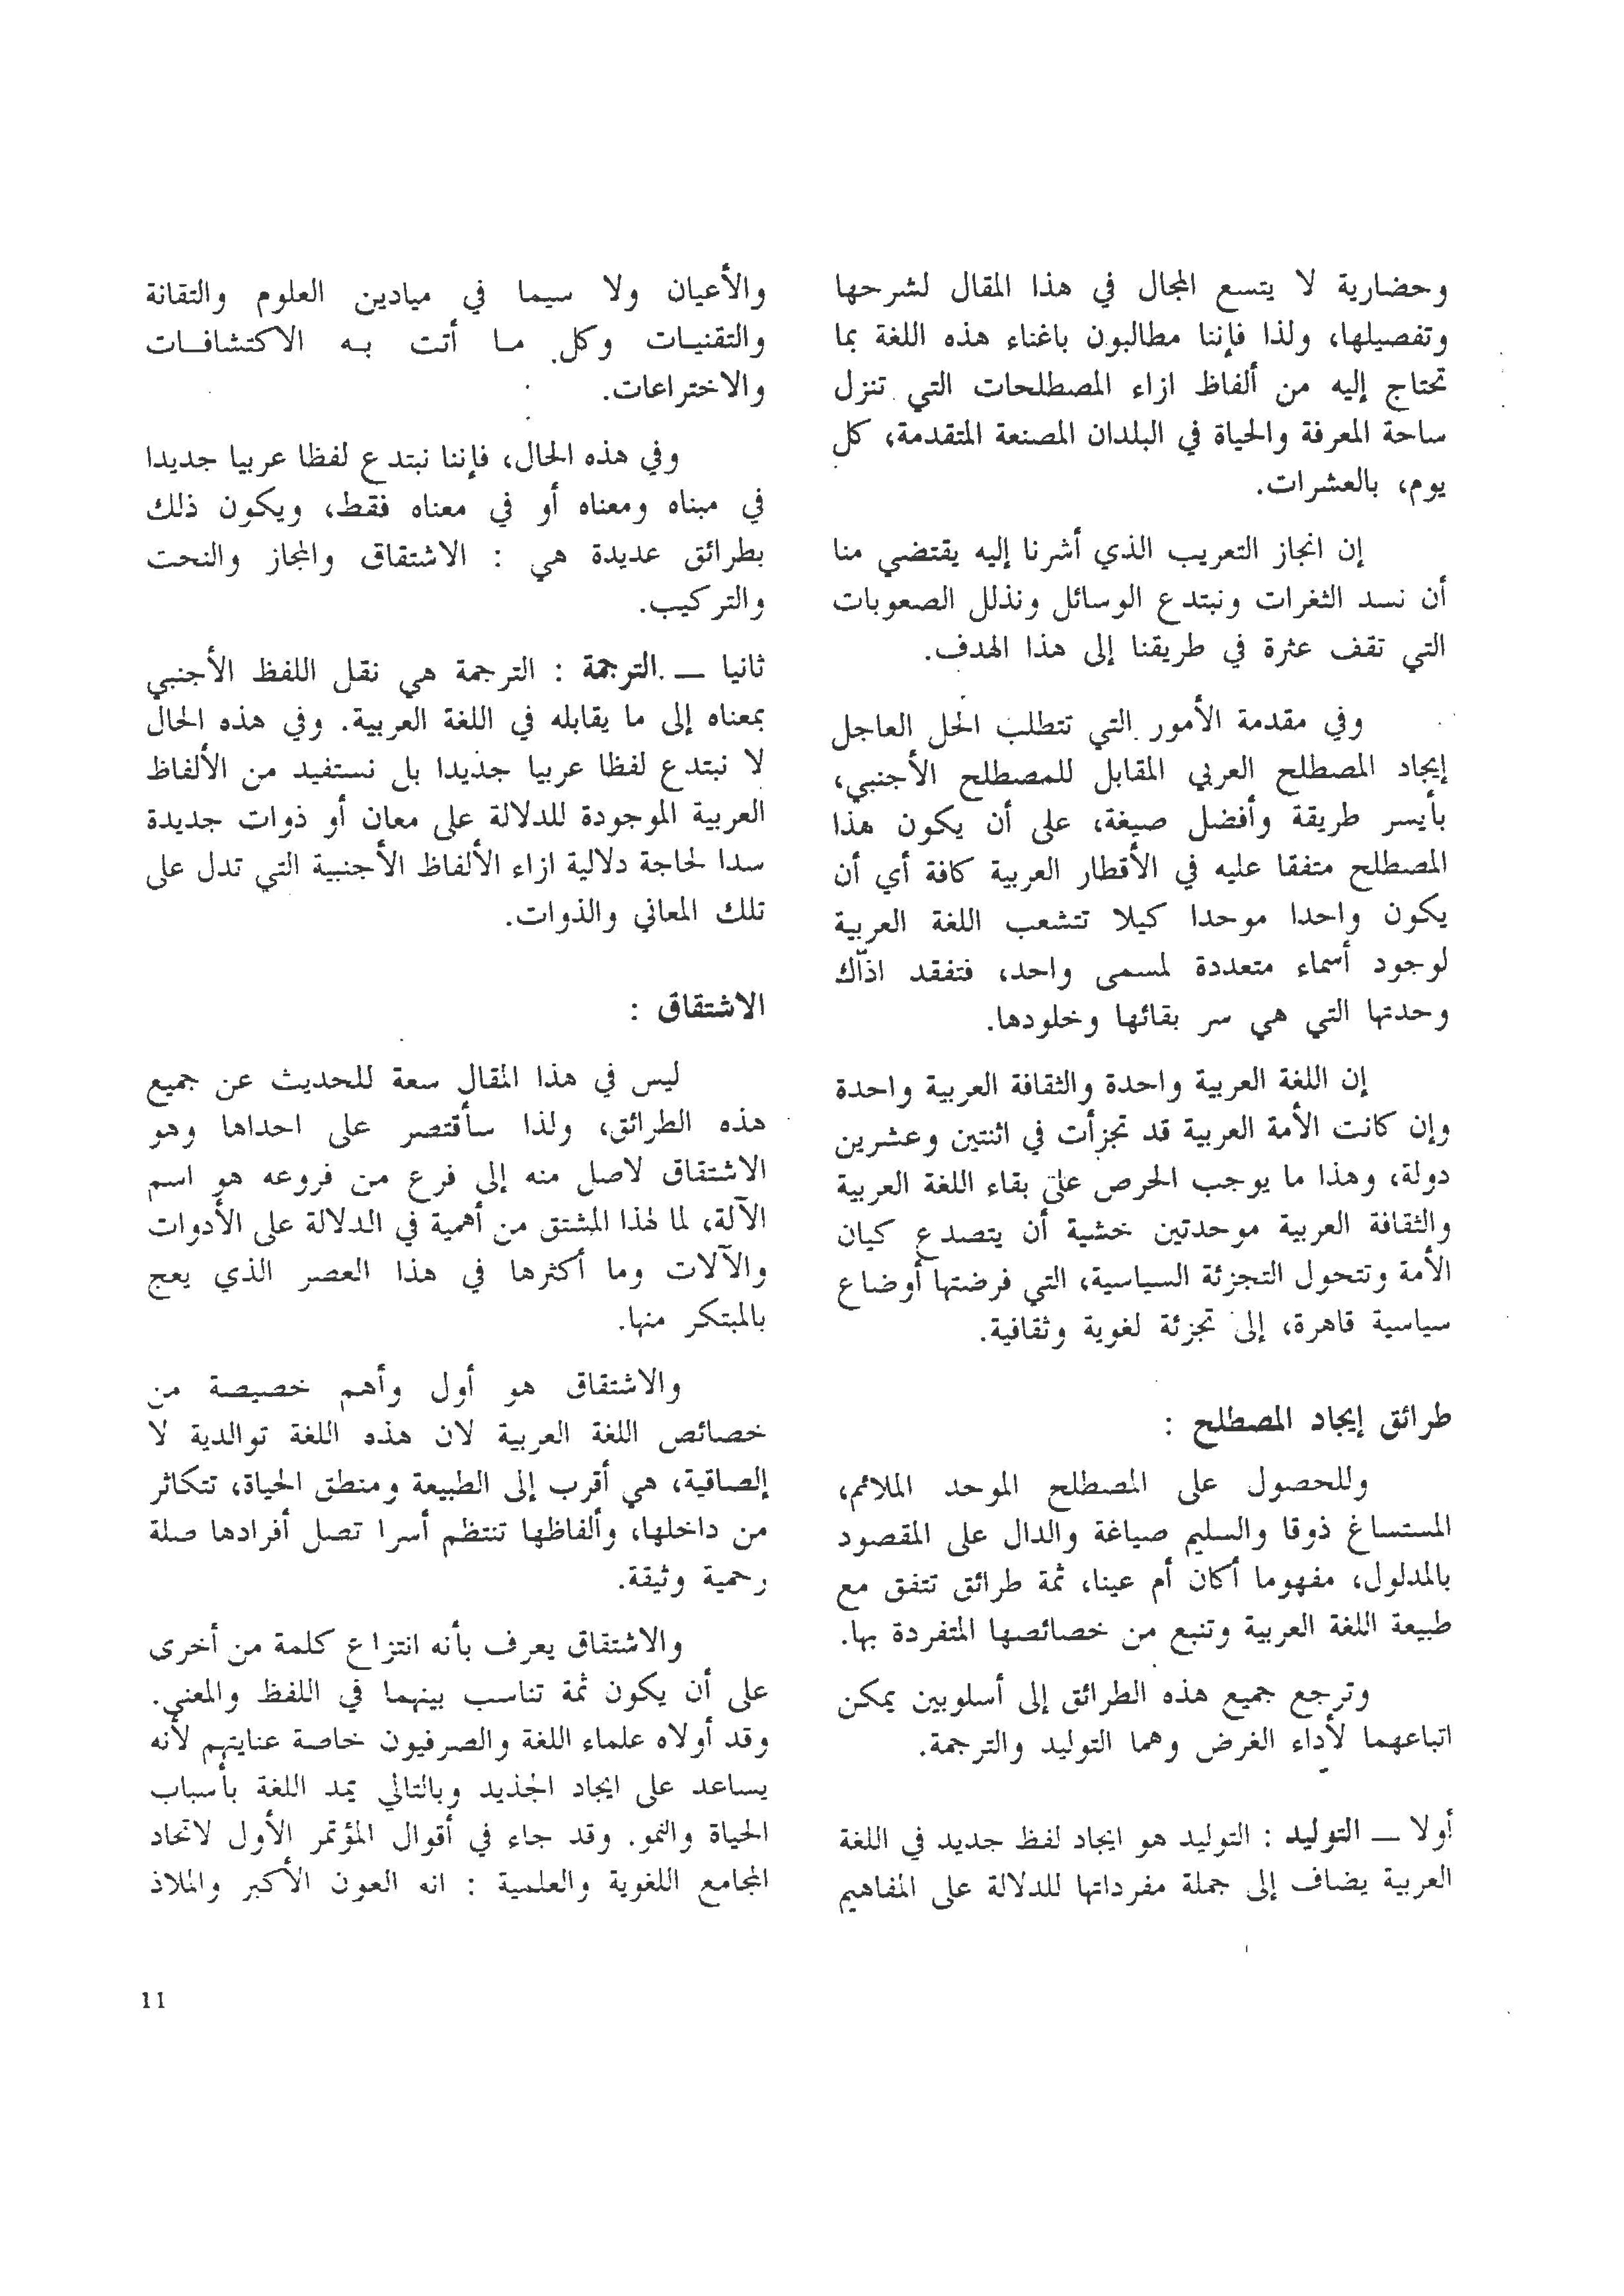 وحضارية لا يتسع المجال في هذا المقال لشرحها
وتفصيلها، ولذا فإننا مطالبون باغناء هذه اللغة بما
تحتاج إليه من ألفاظ ازاء المصطلحات التي تنزل
ساحة المعرفة والحياة في البلدان المصنعة المتقدمة، كل
يوم، بالعشرات.
إن انجاز التعريب الذي أشرنا إليه يقتضي منا
أن نسد الثغرات ونبتدع الوسائل ونذلل الصعوبات
التي تقف عثرة في طريقنا إلى هذا الهدف.
وفي مقدمة الأمور التي تتطلب الحل العاجل
إيجاد المصطلح العربي المقابل للمصطلح الأجنبي،
بأيسر طريقة وأفضل صيغة، على أن يكون هذا
المصطلح متفقا عليه في الأقطار العربية كافة أي أن
يكون واحدا موحدا كيلا تتشعب اللغة العربية
لوجود أسماء متعددة لمسمى واحد، فتفقد اذّاك
وحدتها التي هي سر بقائها وخلودها.
إن اللغة العربية واحدة والثقافة العربية واحدة
وإن كانت الأمة العربية قد تجزأت في اثنتين وعشرين
دولة، وهذا ما يوجب الحرص على بقاء اللغة العربية
والثقافة العربية موحدتين خشية أن يتصدع كيان
الأمة وتتحول التجزئة السياسية، التي فرضتها أوضاع
سياسية قاهرة، إلى تجزئة لغوية وثقافية.
طرائق إيجاد المصطلح :
وللحصول على المصطلح الموحد الملائم،
المستساغ ذوقا والسليم صياغة والدال على المقصود
بالمدلول، مفهوما أكان أم عينا، ثمة طرائق تتفق مع
طبيعة اللغة العربية وتنبع من خصائصها المتفردة بها.
وترجع جميع هذه الطرائق إلى أسلوبين يمكن
اتباعهما لأداء الغرض وهما التوليد والترجمة.
أولا — التوليد : التوليد هو ايجاد لفظ جديد في اللغة
العربية يضاف إلى جملة مفرداتها للدلالة على المفاهيم
والأعيان ولا سيما في ميادين العلوم والتقانة
والتقنيات وكل ما أتت به الاكتشافات
والاختراعات.
وفي هذه الحال، فإننا نبتدع لفظا عربيا جديدا
في مبناه ومعناه أو في معناه فقط، ويكون ذلك
بطرائق عديدة هي : الاشتقاق والمجاز والنحت
والتركيب.
ثانيا — الترجمة : الترجمة هي نقل اللفظ الأجنبي
بمعناه إلى ما يقابله في اللغة العربية. وفي هذه الحال
لا نبتدع لفظا عربيا جديدا بل نستفيد من الألفاظ
العربية الموجودة للدلالة على معان أو ذوات جديدة
سدا لحاجة دلالية ازاء الألفاظ الأجنبية التي تدل على
تلك المعاني والذوات.
الاشتقاق :
ليس في هذا المقال سعة للحديث عن جميع
هذه الطرائق، ولذا سأقتصر على احداها وهو
الاشتقاق لاصل منه إلى فرع من فروعه هو اسم
الآلة، لما لهذا المشتق من أهمية في الدلالة على الأدوات
والآلات وما أكثرها في هذا العصر الذي يعج
بالمبتكر منها.
والاشتقاق هو أول وأهم خصيصة من
خصائص اللغة العربية لان هذه اللغة توالدية لا
إلصاقية، هي أقرب إلى الطبيعة ومنطق الحياة، تتكاثر
من داخلها، وألفاظها تنتظم أسرا تصل أفرادها صلة
رحمية وثيقة.
والاشتقاق يعرف بأنه انتزاع كلمة من أخرى
على أن يكون ثمة تناسب بينهما في اللفظ والمعنى.
وقد أولاه علماء اللغة والصرفيون خاصة عنايتهم لأنه
يساعد على ايجاد الجديد وبالتالي يمد اللغة بأسباب
الحياة والنمو. وقد جاء في أقوال المؤتمر الأول لاتحاد
المجامع اللغوية والعلمية : انه العون الأكبر والملاذ
11